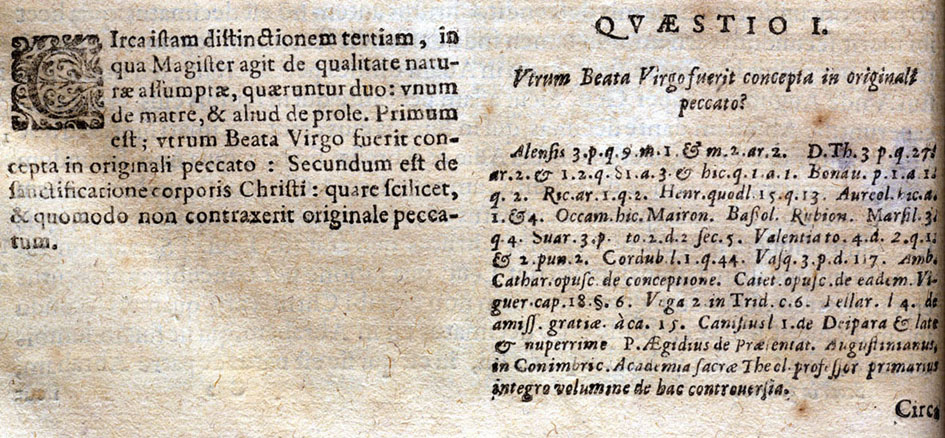 CIrca istam distinctionem tertiam, in
qua Magister agit de qualitate natu-
ræ assumptæ, quæruntur duo: vnum
de matre, & aliud de prole. Primum
est; vtrum Beata Virgo fuerit con-
cepta in originali peccato: Secundum est de
sanctificatione corporis Christi: quare scilicet,
& quomodo non contraxerit originale pecca-
tum.
QVÆSTIO I.
Vtrum Beata Virgo fuerit concepta in originali
peccato?
Alensis 3. p. q. 9. m. 1. & m. 2. ar. 2. D. Th. 3 p. q. 27.
ar. 2. & 1. 2. q. 81. a. 3. & hic. q. 1. a. 1. Bonau. p. 1. a 1.
q. 2. Ric. ar. 1. q. 2. Henr. quodl. 15. q. 13. Aureol. hic. a.
1. & 4. Occam. hic. Mairon. Bassol. Rubion. Marsil. 3.
q. 4. Suar. 3. p. to. 2. d. 2 sec. 5. Valentia to. 4. d. 2. q. 1.
& 2. pun. 2. Cordub. l. 1. q. 44. Vasq. 3. p. d. 117. Amb.
Cathar. opusc. de conceptione. Caiet. opusc. de eadem. Vi-
guer. cap. 18. §. 6. Vega 2 in Trid. c. 6. Bellar. l 4. de
amiss. gratiæ à ca. 15. Canisius l 1. de Deipara & late
& nuperrime P. Ægidius de Præsentat. Augustinianus,
in Conimbric. Academia sacræ Theol. professor primarius
integro volumine de hac controuersia.
Circa